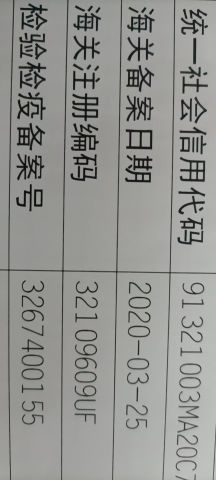 统一社会信用代码 91321003MA20C7
海关备案日期 2020-03-25
海关注册编码 32109609UF
检验检疫备案号 3267400155